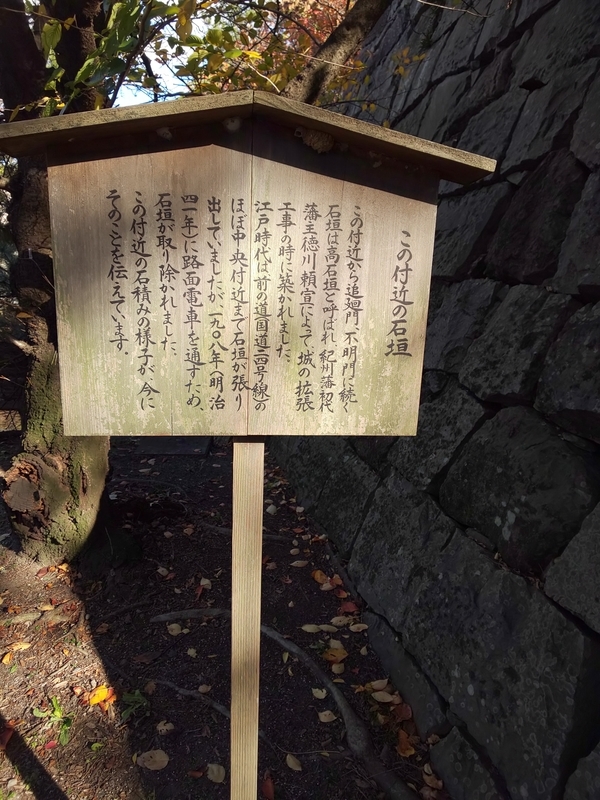 この付近の石垣
この付近から追廻門、不明門に続く
石垣は高石垣と呼ばれ、紀州藩初代
藩主徳川頼宣によって、城の拡張
工事の時に築かれました。
江戸時代は前の道(国道二四号線)の
ほぼ中央付近まで石垣が張り
出していましたが、一九〇八年(明治
四一年)に路面電車を通すため、
石垣が取り除かれました。
この付近の石積みの様子が、今に
そのことを伝えています。